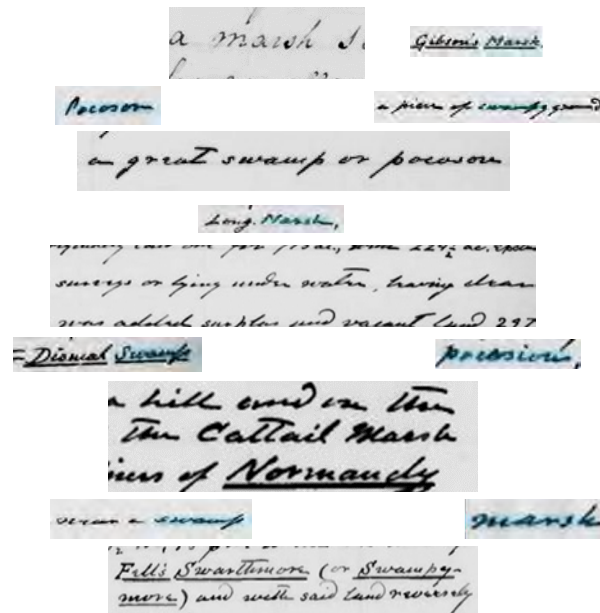 a marsh
Gibson's Marsh.
Pocoson
a piece of swampy ground
a great swamp or pocoson
Long Marsh,
surveys or lying under water, having clear
was added surplus and vacant land 297
Dismal Swamp
pocosion,
a hill and in the
the Cattail Marsh
of Normandy
near a swamp
marsh
Fell's Swarthmore (or Swampy-
more) and with said land reversely